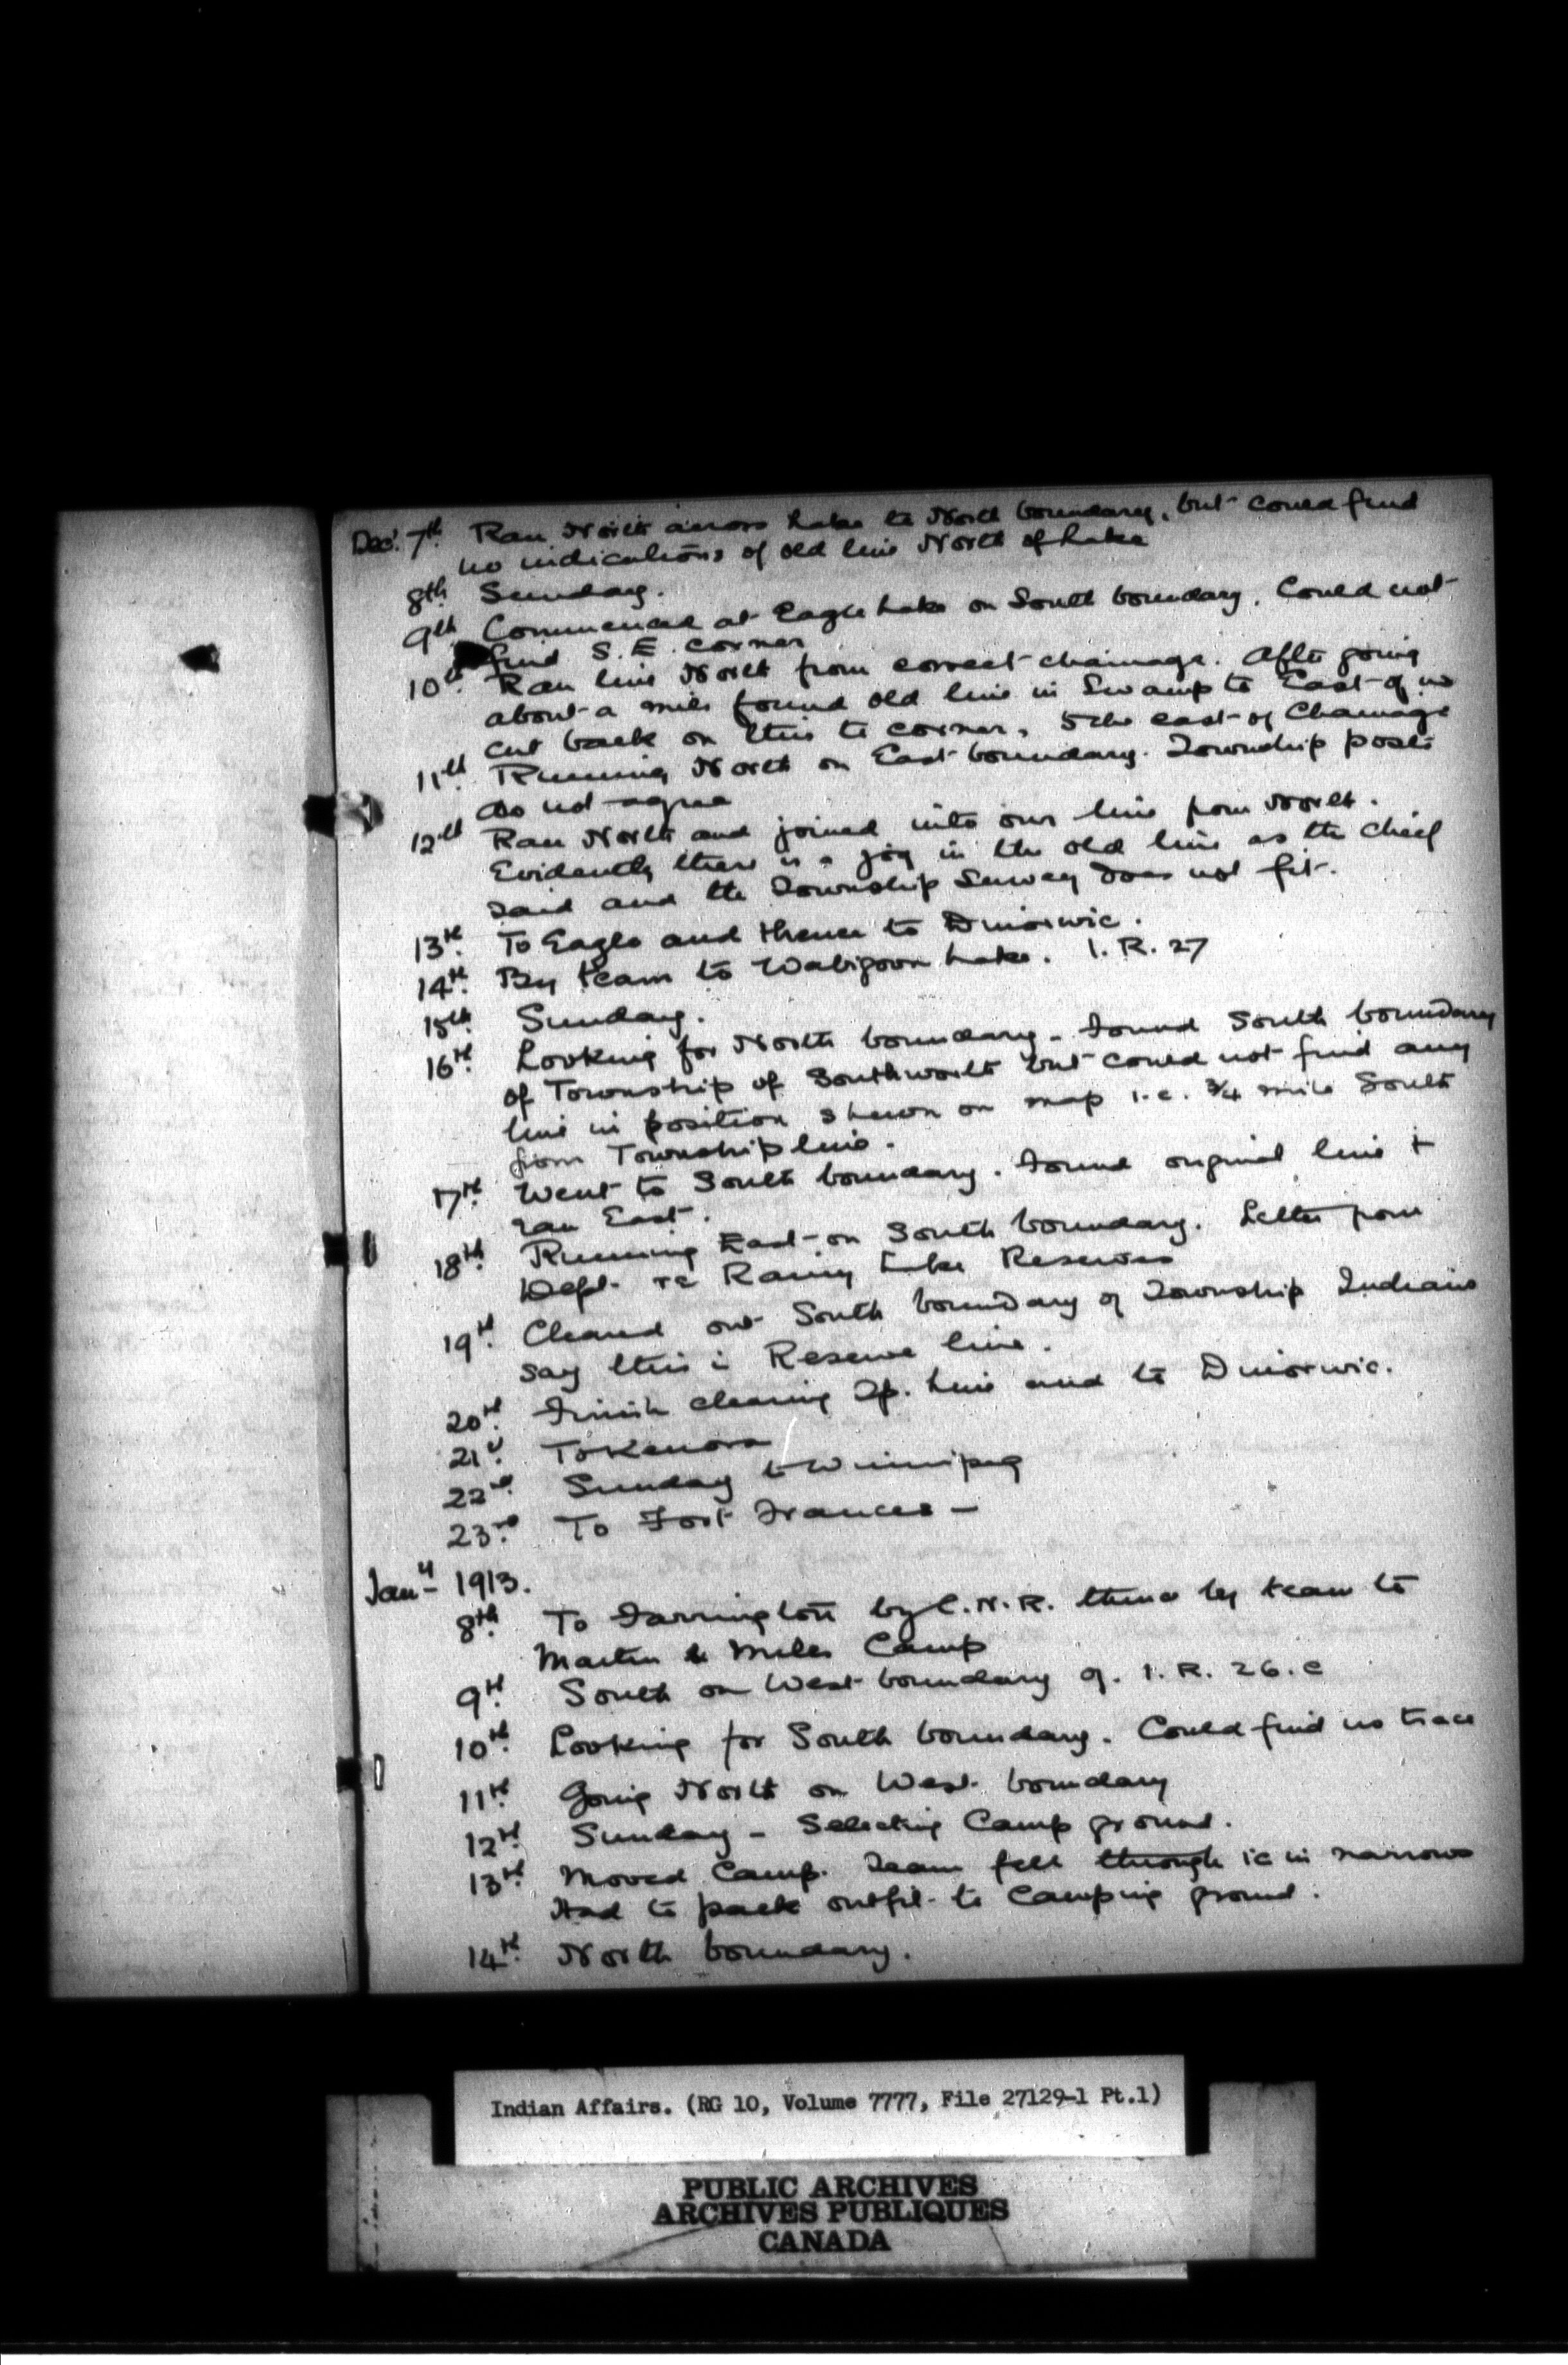 Dec. 7th. Ran North across Lake to North boundary, but could find
no indications of old line North of Lake
8th. Sunday.
9th Commenced at Eagle Lake on South boundary. Could not
find S.E. corner
10th. Ran line North from correct chainage. After going
about a mile found old line in Swamp to East of us
cut back on this to corner, east of Chainage
11th Running North on East boundary. Township posts
do not agree
12th Ran North and joined into our line from North.
Evidently there is a jog in the old line as the chief
said and the Township Survey does not fit.
13th. To Eagle and thence to Dinorwic.
14th. By team to Wabigoon Lake. I.R. 27
15th. Sunday.
16th. Looking for North boundary - Found South boundary
of Township of Southworth but could not find any
line in position shewn on map i.e. 3/4 mile South
from Township line.
17th. Went to South boundary. Found original line +
ran East.
18th. Running East on South boundary. Letter from
Dept. re Rainy Lake Reserves
19th. Cleared out South boundary of Township Indians
say this is Reserve line.
20th. Finish clearing Tp. line and to Dinorwic.
21st To Kenora
22nd. Sunday to Winnipeg
23rd. To Fort Frances -
Jany - 1913.
8th. To Farrington by C.N.R. thence by team to
Martin & Miles Camp
9th. South on West boundary of. I.R. 26.c
10th. Looking for South boundary. Could find no trace
11th. Going North on West boundary
12th. Sunday - Selecting Camp ground.
13th. Moved Camp. Team fell through ice in narrows
Had to pack outfit to Camping ground.
14th. North boundary.
Indian Affairs. (RG 10, Volume 7777, File 27129-1 Pt.1)
PUBLIC ARCHIVES
ARCHIVES PUBLIQUES
CANADA